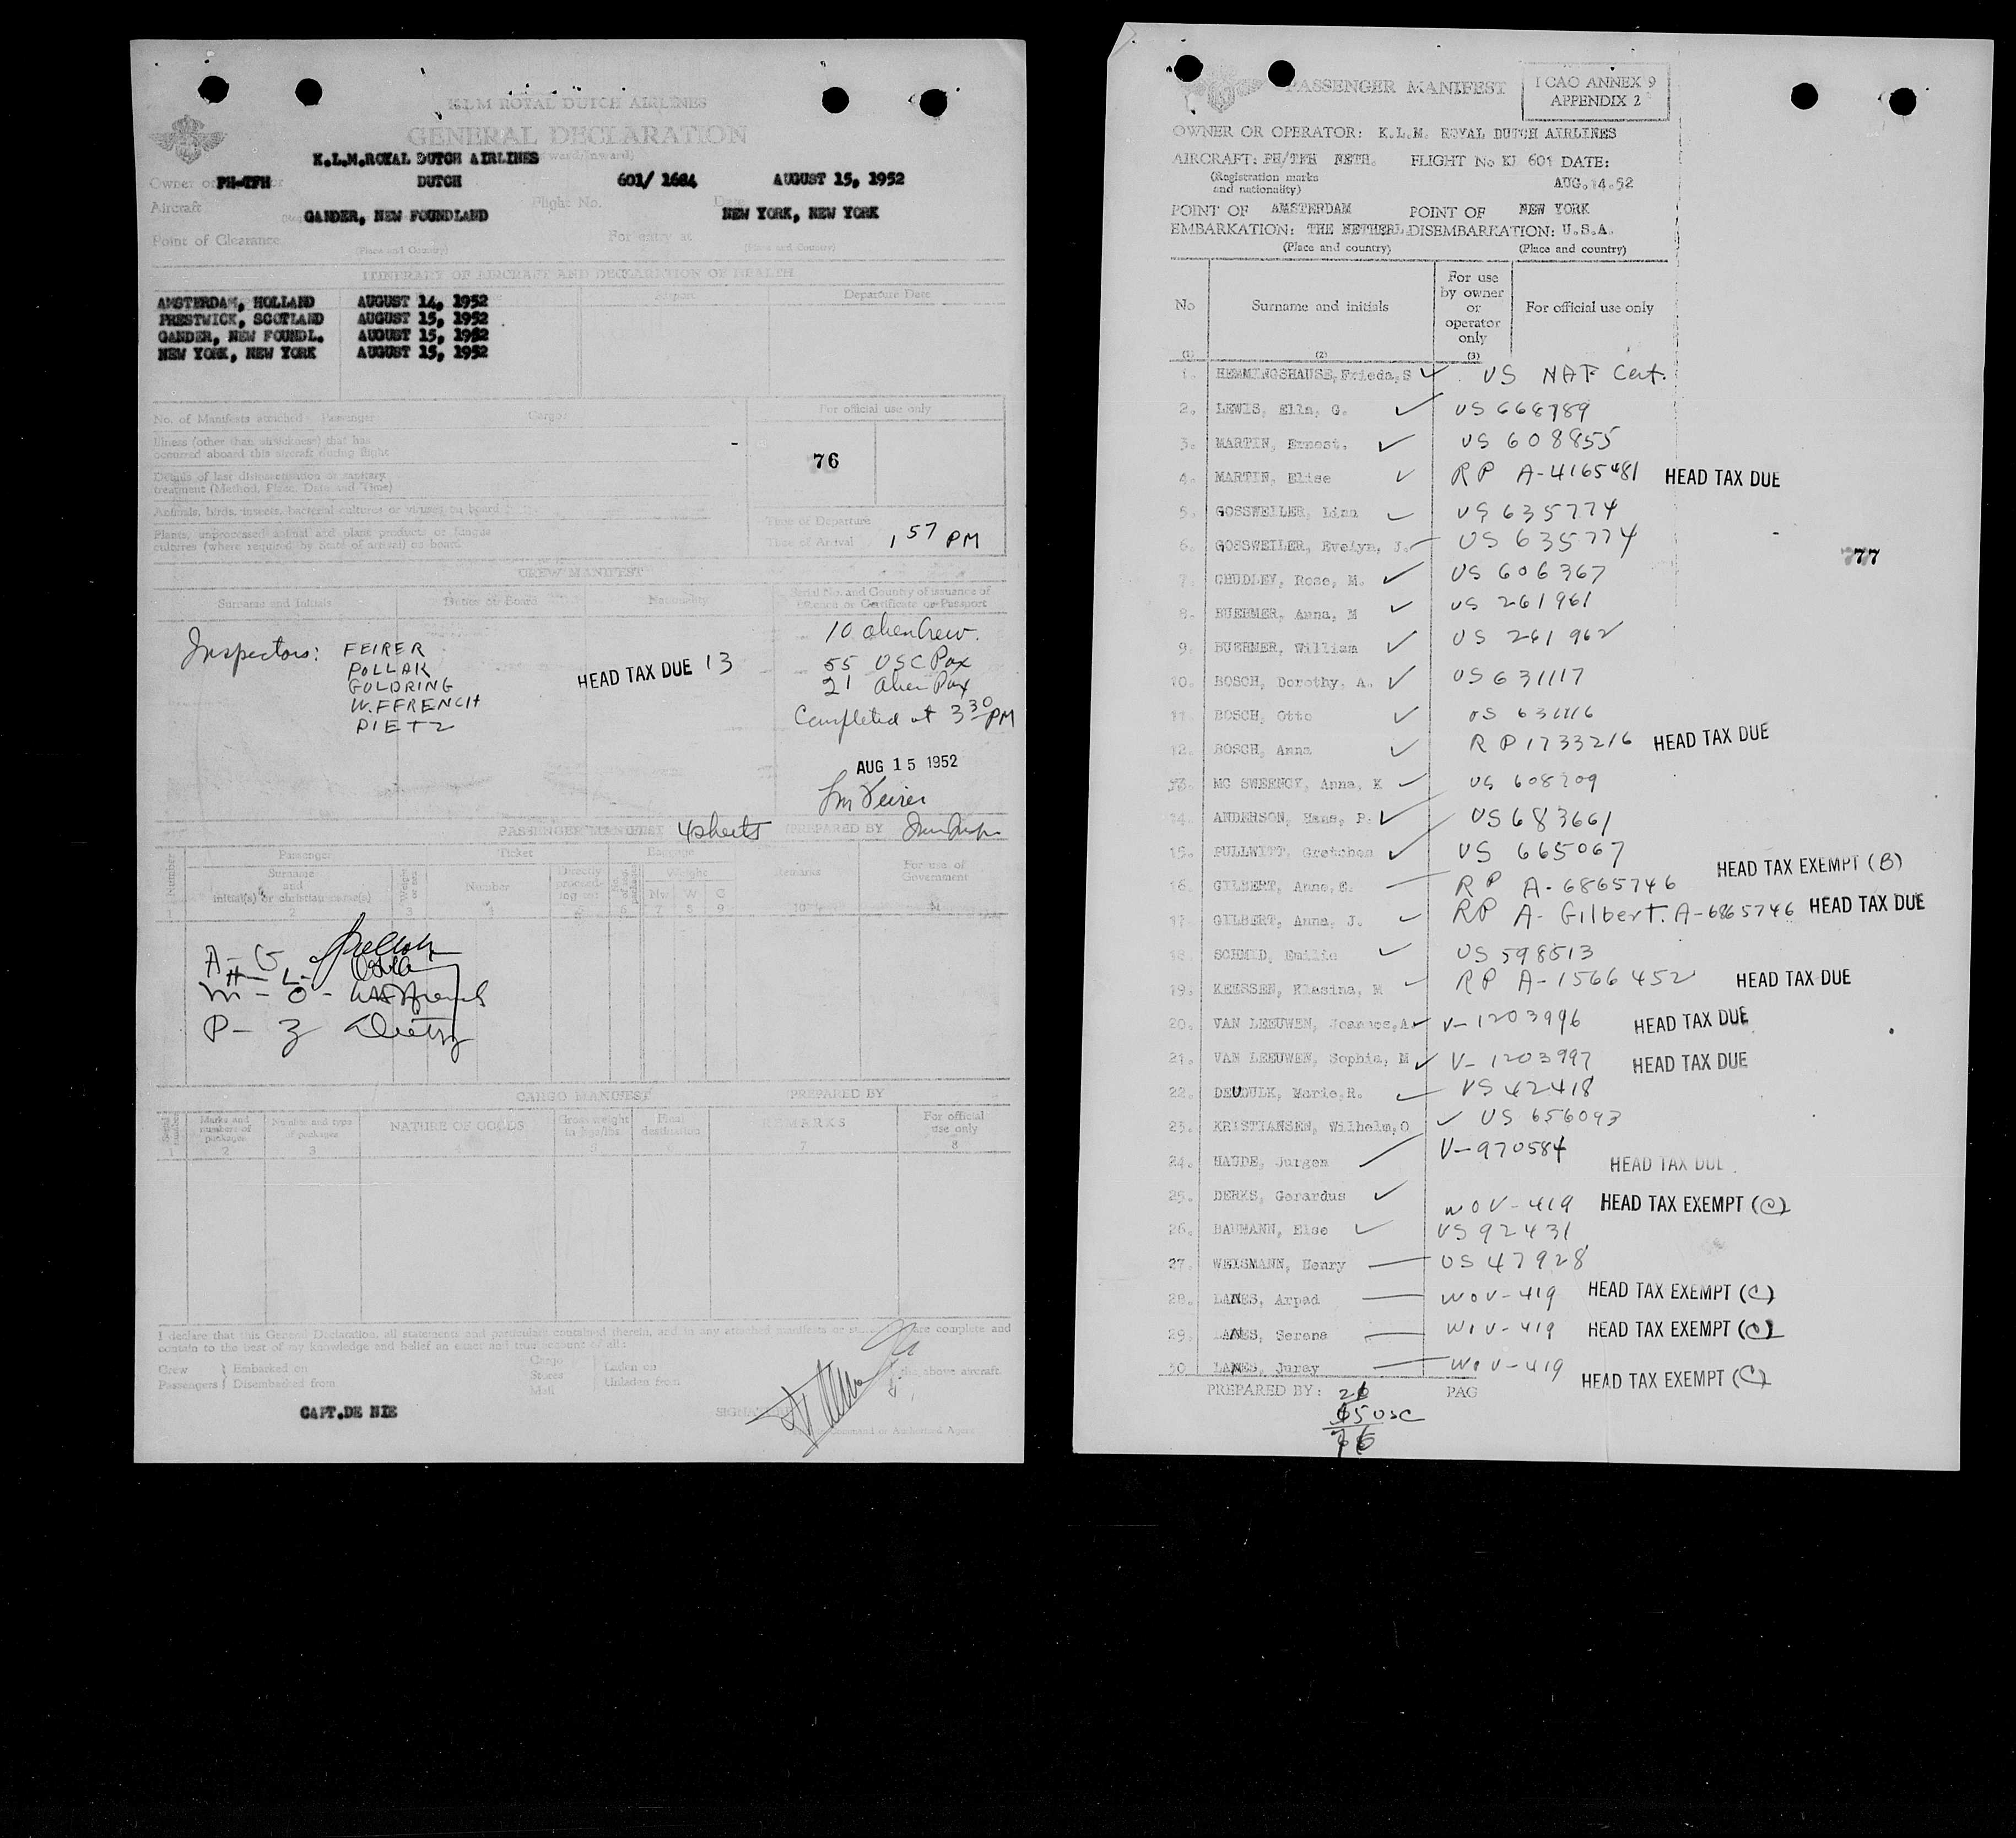 K.L.M ROYAL DUTCH AIRLINES
GENERAL DECLARATION
K.L.M.ROYAL DUTCH AIRLINES
Owner or PH-TFH DUTCH 601/ 1684 AUGUST 15, 1952
Aircraft Flight No. Date
GANDER, NEW FOUNDLAND NEW YORK, NEW YORK
Point of Clearance For entry at
(Place and Country) (Place and Country)
ITINERARY OF AIRCRAFT AND DECLARATION OF HEALTH
Departure Date
AMSTERDAM, HOLLAND AUGUST 14, 1952
PRESTWICK, SCOTLAND AUGUST 15, 1952
GANDER, NEW FOUNDL. AUGUST 15, 1952
NEW YORK, NEW YORK AUGUST 15, 1952
No. of Manifests attached: Passenger Cargo:
For official use only
Illness (other than airsickness) that has
occurred aboard this aircraft during flight
76
Details of last disinsectization or sanitary
treatment (Method, Place, Date and Time)
Animals, birds, insects, bacterial cultures or viruses on board
Plants, unprocessed animal and plant products or fungus
cultures (where required by State of arrival) on board
Time of Departure
Time of Arrival 1 57 PM
CREW MANIFEST
Surname and Initials Duties on Board Nationality Serial No. and Country of issuance of
License or Certificate or Passport
Inspectors: FEIRER
POLLAK
GOLDRING
W.FFRENCH
DIETZ
HEAD TAX DUE 13
10 alien Crew.
55 USC Pax
21 alien Pax
Completed at 3 30 PM
AUG 15 1952
PASSENGER MANIFEST 4 sheets PREPARED BY
Number Passenger Ticket Baggage Remarks For use of
Government
Surname
and
initial(s) or christian name(s)
Number
Weight
2 3 6 7 8 9 10
A - G
H - L -
M - O -
P - Z Dietz
CARGO MANIFEST PREPARED BY
Marks and
numbers of
packages
Number and type
of packages
NATURE OF GOODS
Gross weight
Final
destination
REMARKS
For official
use only
1 2 3 7 8
I declare that this General Declaration, all statements and particulars contained therein, and in any attached manifests are complete and
contain to the best of my knowledge and belief an exact and true account of all:
Crew } Embarked on Cargo Laden on
Passengers } Disembarked from Stores Unladen from the above aircraft.
Mail
CAPT.DE NIE
SIGNATURE
PASSENGER MANIFEST
I CAO ANNEX 9
APPENDIX 2
OWNER OR OPERATOR: K.L.M. ROYAL DUTCH AIRLINES
AIRCRAFT: PH/TFH NETH. FLIGHT No KJ 601 DATE:
(Registration marks
and nationality)
AUG.14.52
POINT OF AMSTERDAM POINT OF NEW YORK
EMBARKATION: THE NETHERL. DISEMBARKATION: U.S.A.
(Place and country) (Place and country)
No Surname and initials For use
by owner
or
operator
only
For official use only
(1) (2) (3)
1. HEMMINGSHAUSE, Frieda, S US NAT Cert.
2. LEWIS, Ella, G. US 668789
3. MARTIN, Ernest. US 608855
4. MARTIN, Elise RP A-4165481 HEAD TAX DUE
5. GOSSWEILER, Lina US 635774
6. GOSSWEILER, Evelyn, J. US 635774
77
7. CHUDLEY, Rose, M. US 606367
8. BUEHMER, Anna, M US 261961
9. BUEHMER, William US 261962
10. BOSCH, Dorothy, A. US 631117
11. BOSCH, Otto US 631116
12. BOSCH, Anna RP 1733216 HEAD TAX DUE
13. MC SWEENCY, Anna, K US 608209
14. ANDERSON, Hans, P. US 683661
15. PULLWITT, Gretchen US 665067
16. GILBERT, Anne, E. RP A-6865746 HEAD TAX EXEMPT (B)
17. GILBERT, Anna, J. RP A- Gilbert. A-6865746 HEAD TAX DUE
18. SCHMID, Emilie US 598513
19. KEESSEN, Klasina, M RP A-1566452 HEAD TAX DUE
20. VAN LEEUWEN, Joannes, A. V-1203996 HEAD TAX DUE
21. VAN LEEUWEN, Sophia, M V-1203997 HEAD TAX DUE
22. DEUDULK, Marie, R. US 42418
23. KRISTIANSEN, Wilhelm, O US 656093
24. HAUDE, Jurgen V-970584 HEAD TAX DUE
25. DERKS, Gerardus WOV-419 HEAD TAX EXEMPT (C)
26. BAUMANN, Else US 92431
27. WEISMANN, Henry US 47928
28. LANES, Arpad WOV-419 HEAD TAX EXEMPT (C)
29. LANES, Serena WOV-419 HEAD TAX EXEMPT (C)
30. LANES, Juray WOV-419 HEAD TAX EXEMPT (C)
PREPARED BY: PAG
21
55 USC
76